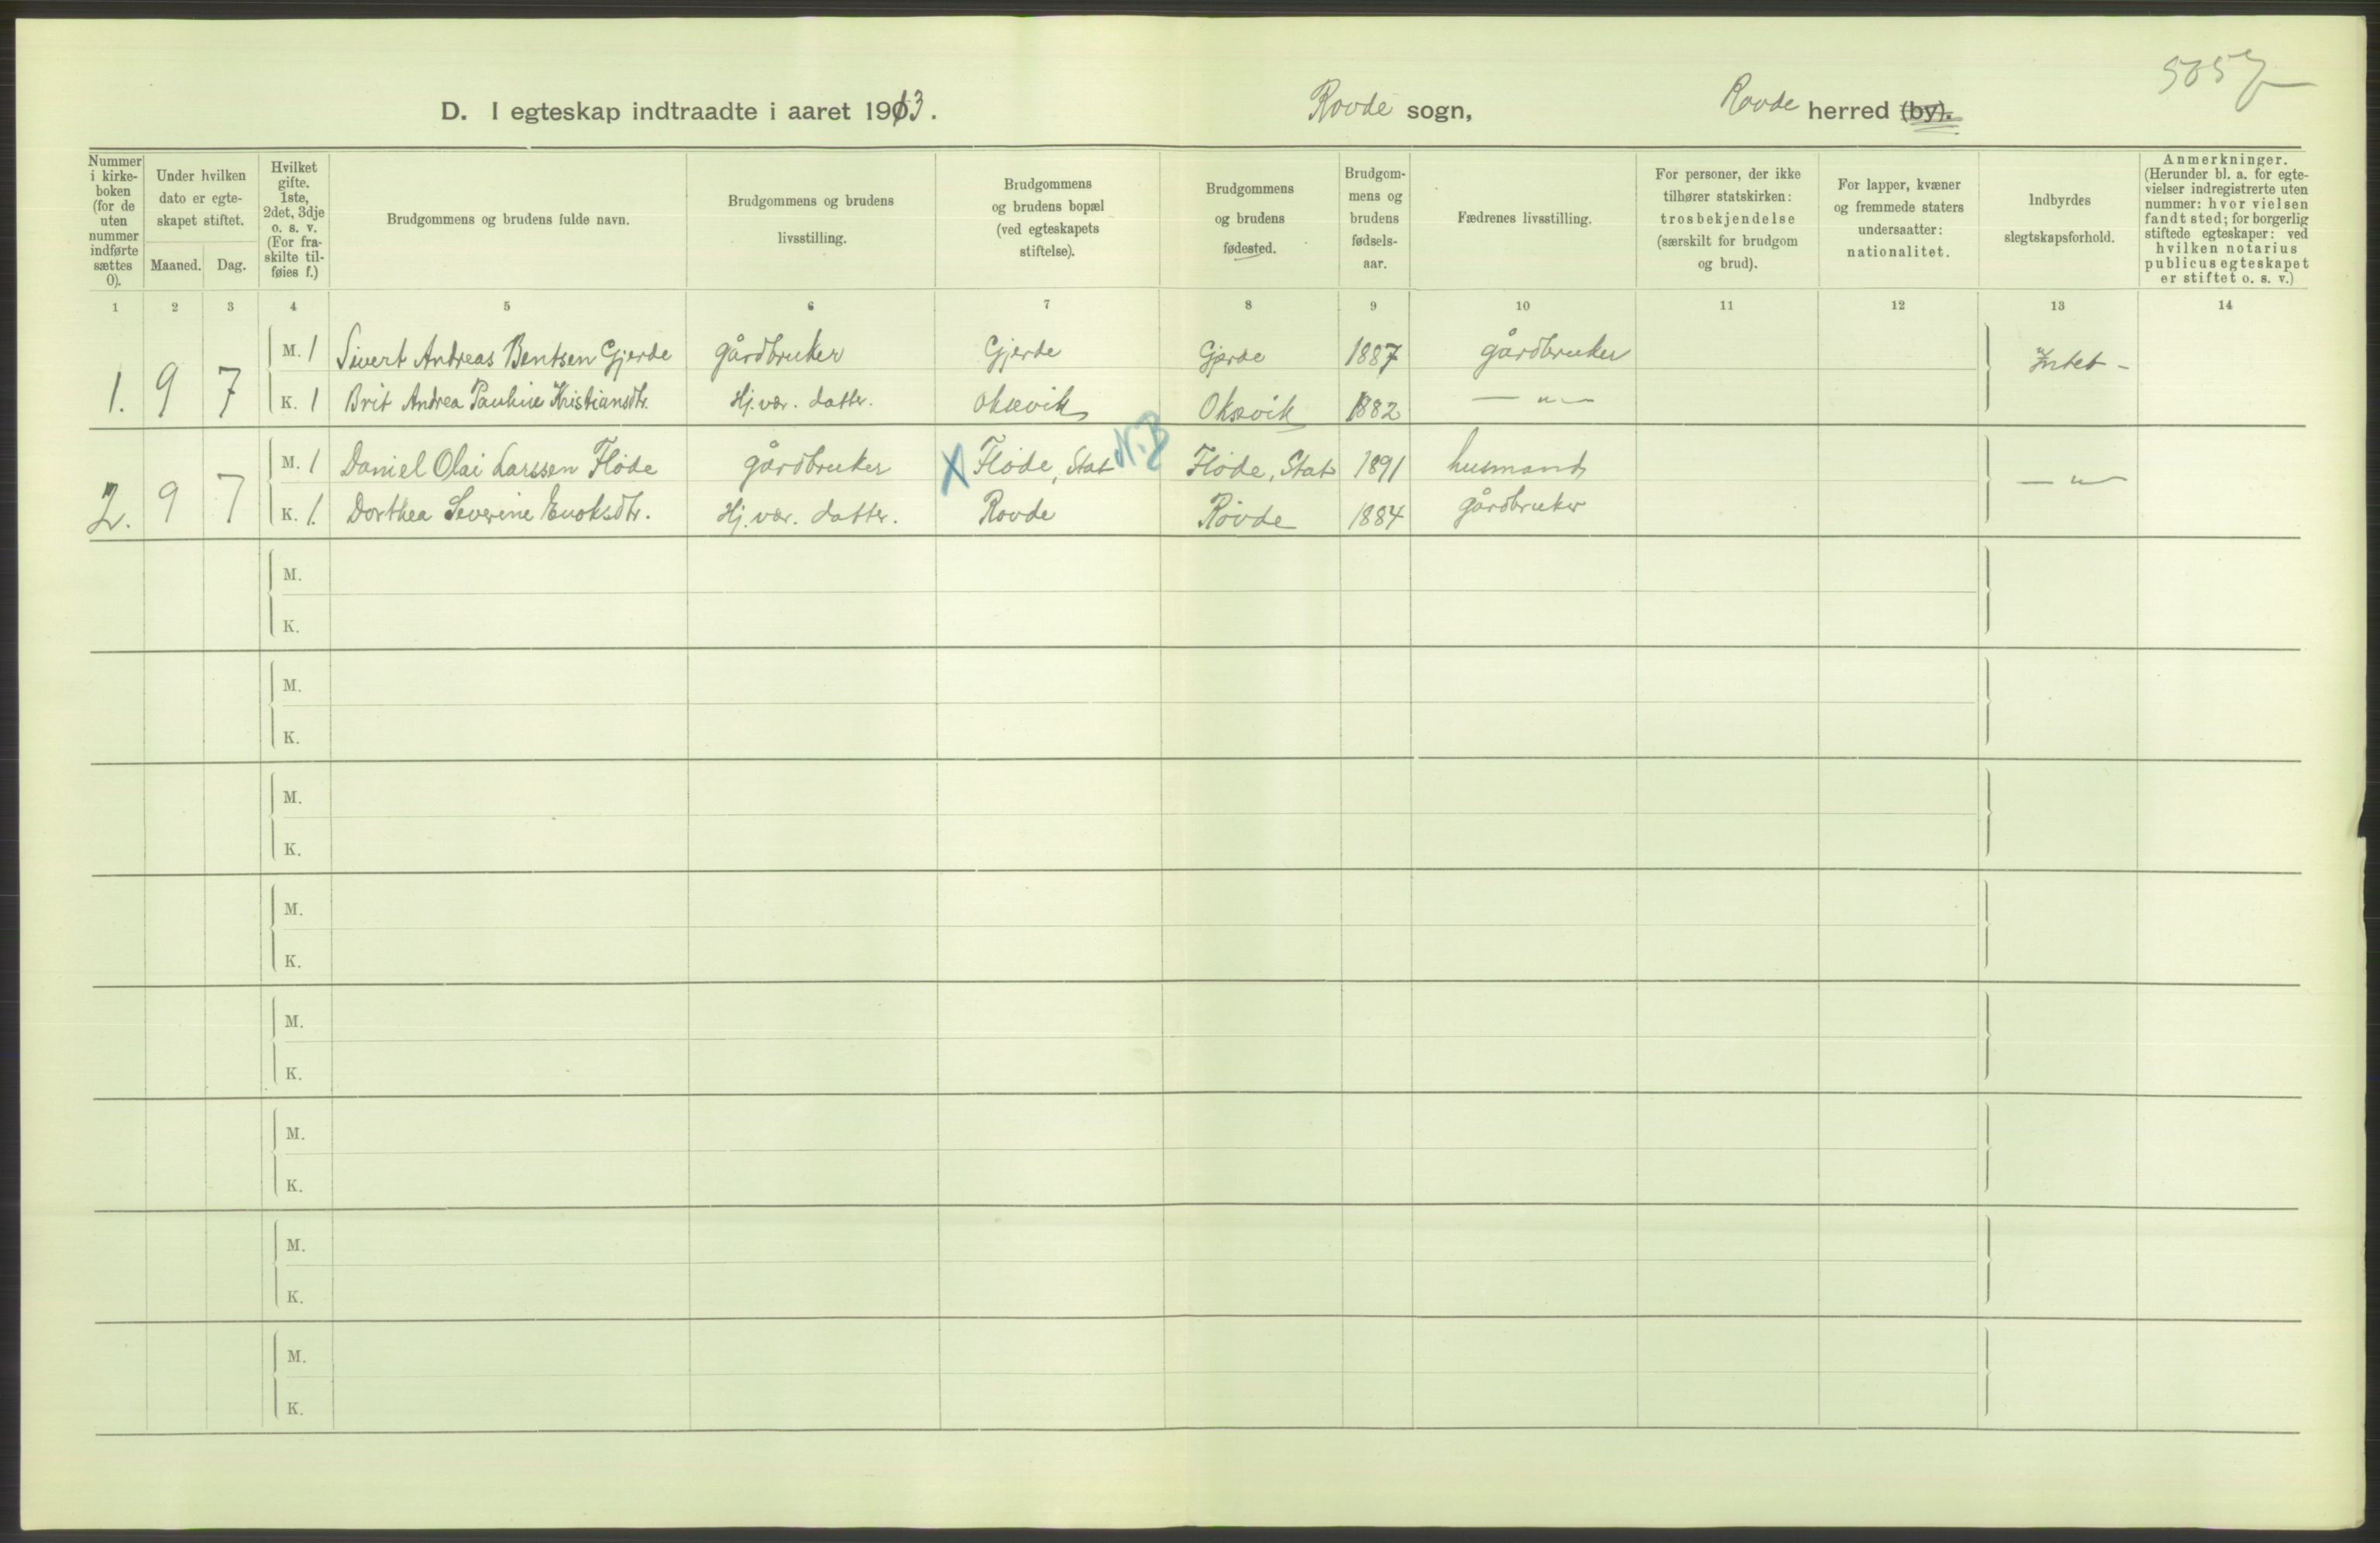 5057
D. I egteskap indtraadte i aaret 1913. Rovde sogn, Rovde herred (by).
Nummer i kirkeboken (for de uten nummer indførte sættes 0).
Under hvilken dato er egteskapet stiftet.
Maaned. Dag.
Hvilket gifte. 1ste, 2det, 3dje o. s. v. (For fraskilte tilføies f.)
Brudgommens og brudens fulde navn.
Brudgommens og brudens livsstilling.
Brudgommens og brudens bopæl (ved egteskapets stiftelse).
Brudgommens og brudens fødested.
Brudgommens og brudens fødselsaar.
Fædrenes livsstilling.
For personer, der ikke tilhører statskirken: trosbekjendelse (særskilt for brudgom og brud).
For lapper, kvæner og fremmede staters undersaatter: nationalitet.
Indbyrdes slegtskapsforhold.
Anmerkninger. (Herunder bl. a. for egtevielser indregistrerte uten nummer: hvor vielsen fandt sted; for borgerlig stiftede egteskaper: ved hvilken notarius publicus egteskapet er stiftet o. s. v.)
1 2 3 4 5 6 7 8 9 10 11 12 13 14
1. 9 7 M. 1 Sivert Andreas Bentsen Gjerde gårdbruker Gjerde Gjerde 1887 gårdbruker Intet -
K. 1 Brit Andrea Pauline Kristiansdtr. Hj. vær. datter. Oksevik Oksevik 1882 — " —
2. 9 7 M. 1 Daniel Olai Larssen Fløde gårdbruker X Fløde, Stat N.B Fløde, Stat 1891 husmand — " —
K. 1. Dorthea Severine Enoksdtr. Hj. vær. datter. Rovde Rovde 1884 gårdbruker
M.
K.
M.
K.
M.
K.
M.
K.
M.
K.
M.
K.
M.
K.
M.
K.